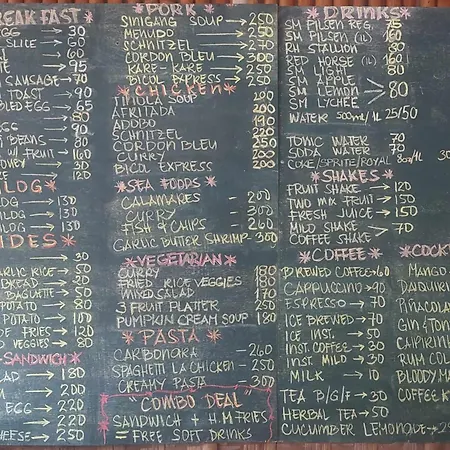 BREAKFAST
EGG → 30
SLICE → 60
→ 60
→ 95
SAUSAGE → 70
TOAST → 90
BLED EGG → 65
→ 80
EGG → 90
BEANS → 80
W/ FRUIT → 160
→ 30
→ 120
LOG
LOG → 130
LOG → 130
LOG → 130
IDES
→ 30
ARLIC RICE → 50
BREAD → 20
BAGUETTE → 50
POTATO → 80
POTATO → 100
FRIES → 120
VEGGIES → 80
SANDWICH
AD → 180
→ 200
EGG → 220
→ 220
CHEESE → 250
* PORK *
SINIGANG SOUP → 250
MENUDO → 250
SCHNITZEL → 270
CORDON BLEU → 300
KARE-KARE → 250
BICOL EXPRESS → 250
* CHICKEN *
TINOLA SOUP 200
AFRITADA 200
ADOBO 190
SCHNITZEL 220
CORDON BLEU 250
CURRY 200
BICOL EXPRESS 200
* SEA FOODS *
CALAMARES - 200
CURRY - 300
FISH & CHIPS - 260
GARLIC BUTTER SHRIMP - 300
* VEGETARIAN *
CURRY 180
FRIED RICE VEGGIES 180
MIXED SALAD 170
3 FRUIT PLATTER 250
PUMPKIN CREAM SOUP 180
* PASTA *
CARBONARA - 260
SPAGHETTI LA CHICKEN - 250
CREAMY PASTA - 300
"COMBO DEAL"
SANDWICH + H.M FRIES
= FREE SOFT DRINKS
* DRINKS *
SM PILSEN REG. 75
SM PILSEN (1L) 160
RH STALLION 80
RED HORSE (1L) 160
SM LIGHT 80
SM LEMON > 80
SM LYCHEE
WATER 500ml/1L 25/50
TONIC WATER 70
SODA WATER 70
COKE/SPRITE/ROYAL
* SHAKES *
FRUIT SHAKE → 120
TWO MIX FRUIT → 150
FRESH JUICE → 150
MILD SHAKE > 70
COFFEE SHAKE
* COFFEE *
BREWED COFFEE → 60
CAPPUCCINO → 90
ESPRESSO → 70
ICE BREWED → 70
ICE INST. → 50
INST. COFFEE → 30
INST. MILD → 30
MILK → 10
TEA B/G/F → 30
HERBAL TEA → 50
CUCUMBER LEMONADE →
COCK
MANGO
DAIQUIRI
PIÑACOLA
GIN & TON
CAIPIRIN
RUM COL
BLOODY MA
COFFEE